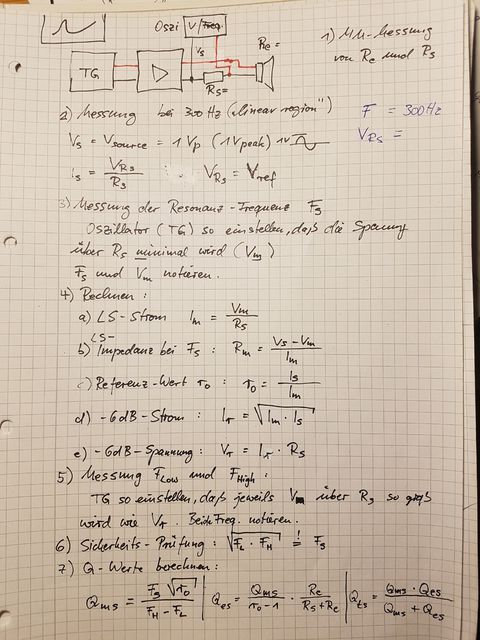 Oszi V/Freq
Vs Re=
TG
Rs=
1) MM-Messung
von Re und Rs
2) Messung bei 300Hz („linear region")
F = 300Hz
Vs = Vsource = 1Vp (1Vpeak) 1V
VRs =
Is = VRs / Rs VRs = Vref
3) Messung der Resonanz-Frequenz Fs
Oszillator (TG) so einstellen, daß die Spannung
über Rs minimal wird (Vm)
Fs und Vm notieren.
4) Rechnen:
a) LS-Strom Im = Vm / Rs
LS-
b) Impedanz bei Fs: Rm = Vs - Vm / Im
c) Referenz-Wert r0: r0 = Is / Im
d) -6dB-Strom: Ir = √Im · Is
e) -6dB-Spannung: Vr = Ir · Rs
5) Messung FLow und FHigh:
TG so einstellen, daß jeweils V über Rs so groß
wird wie Vr. Beide Freq. notieren.
6) Sicherheits-Prüfung: √FL · FH =! Fs
7) Q-Werte berechnen:
Qms = Fs √r0 / FH - FL | Qes = Qms / r0 - 1 · Re / Rs + Re | Qts = Qms · Qes / Qms + Qes